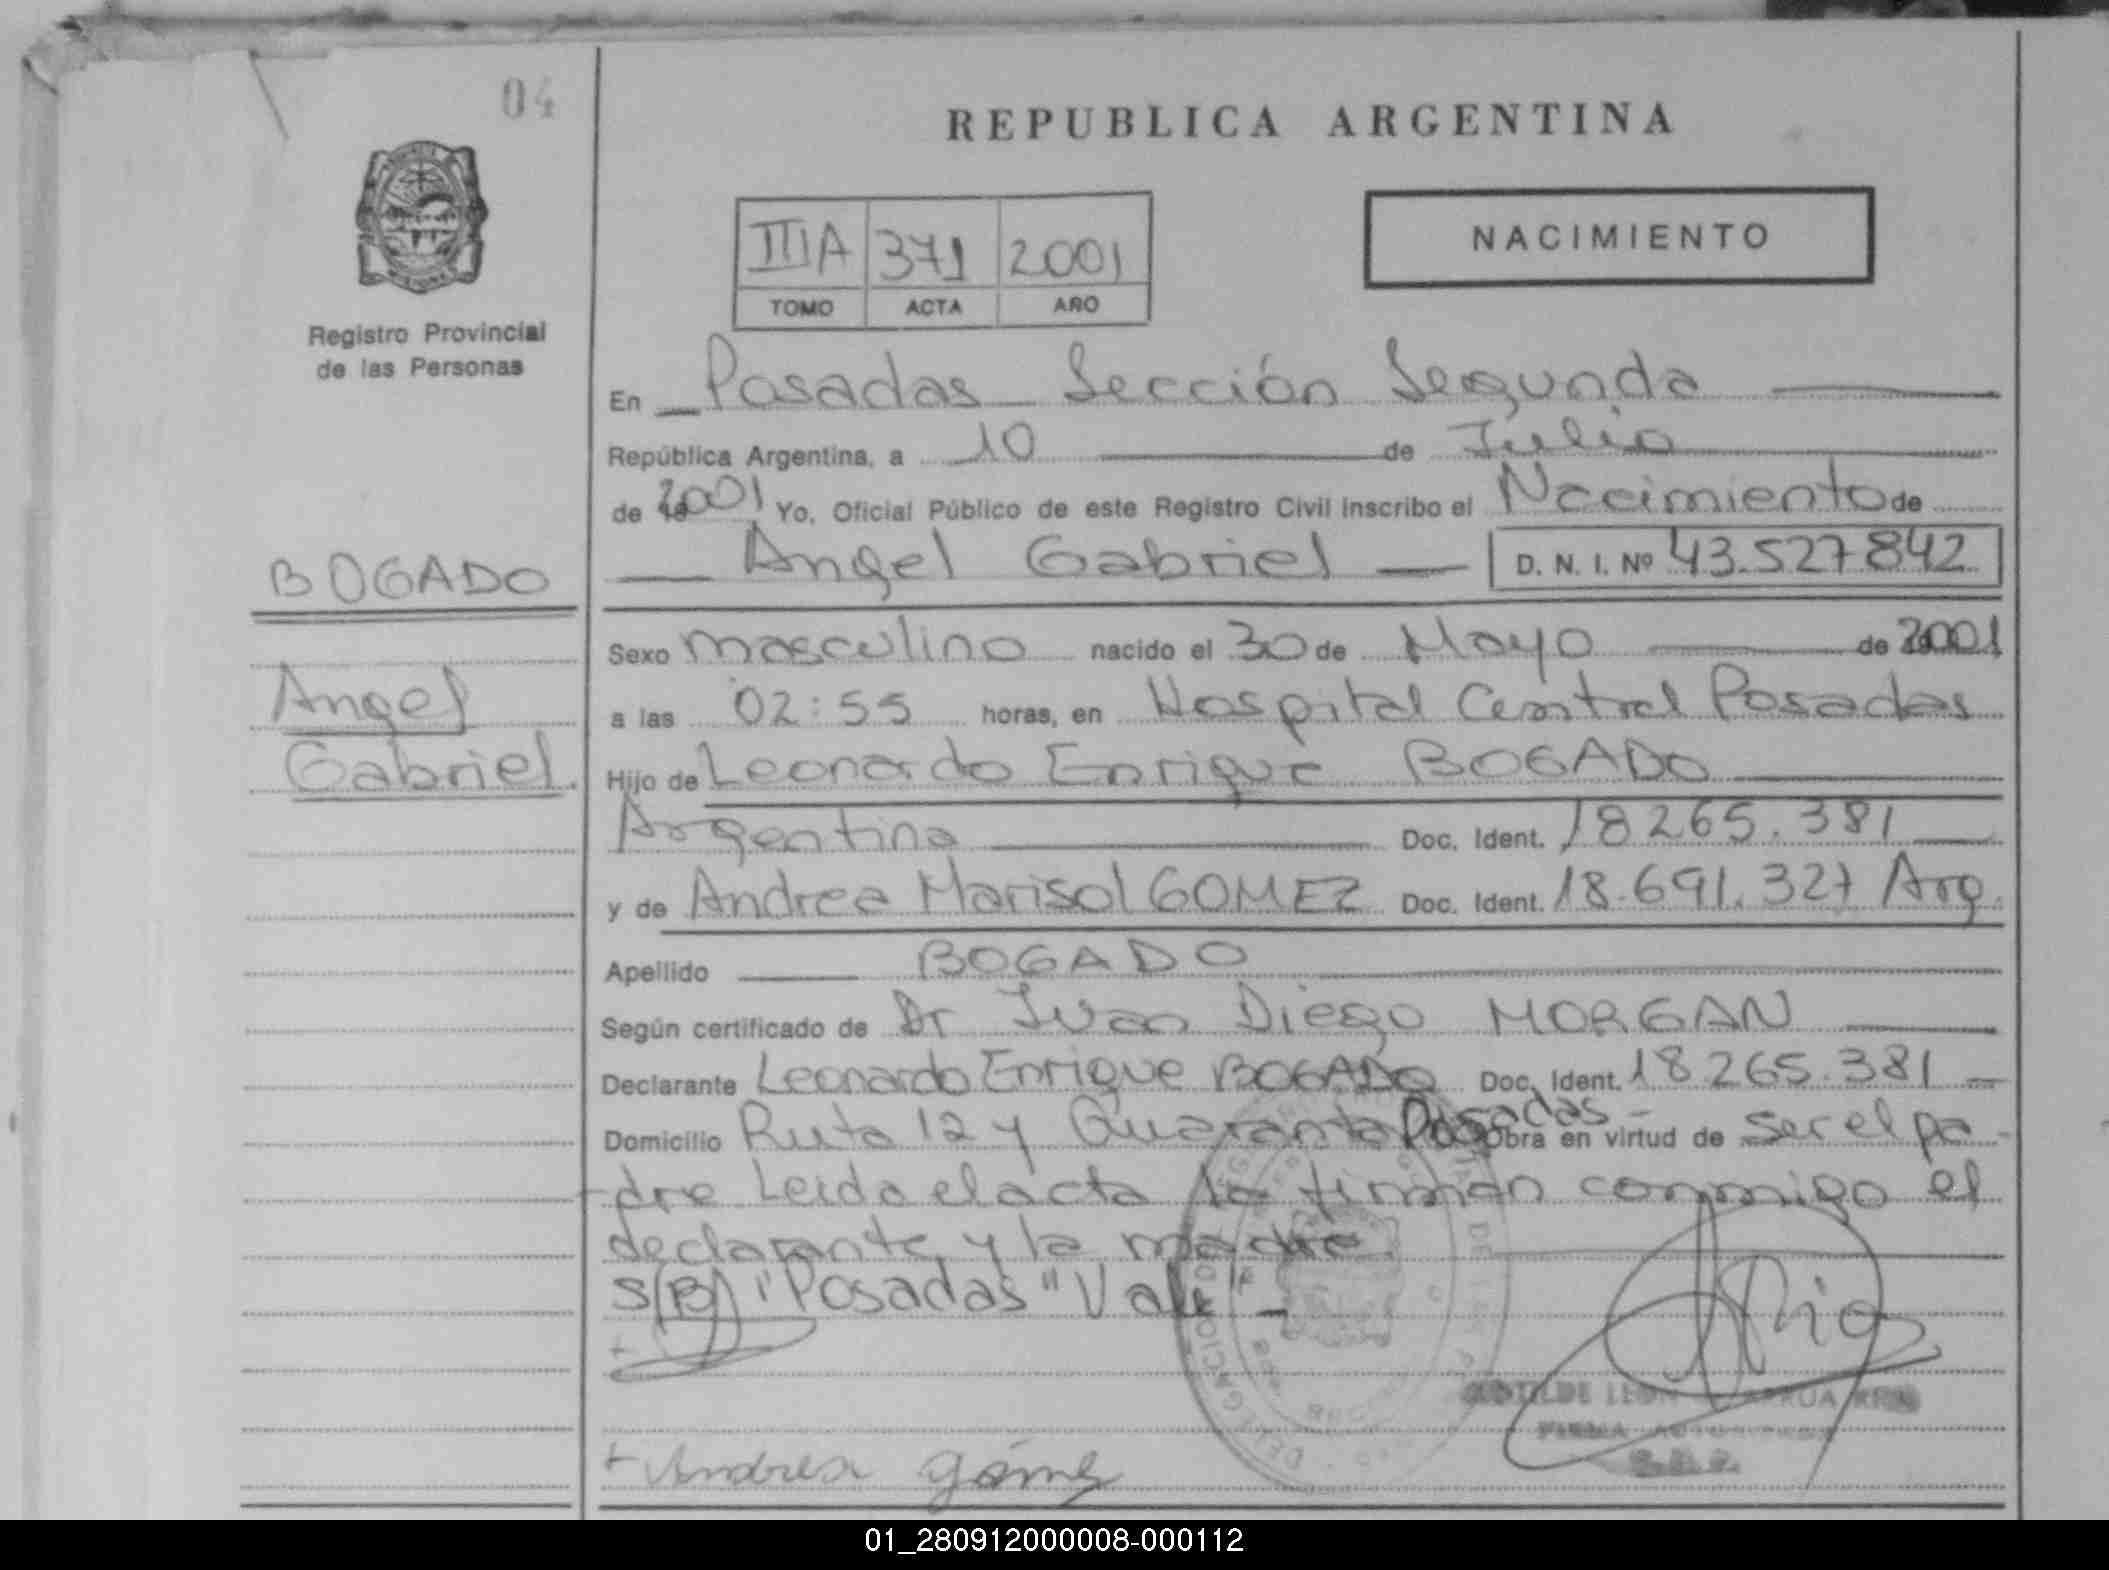 04
REPUBLICA ARGENTINA
NACIMIENTO
IIIA 371 2001
TOMO ACTA AÑO
Registro Provincial
de las Personas
En Posadas Sección Segunda
República Argentina, a 10 de Julio
de 2001 Yo, Oficial Público de este Registro Civil inscribo el Nacimiento de
Angel Gabriel D. N. I. Nº 43.527.842
BOGADO
Angel
Gabriel.
Sexo masculino nacido el 30 de Mayo de 2001
a las 02:55 horas, en Hospital Central Posadas
Hijo de Leonardo Enrique BOGADO
Argentina Doc. Ident. 18265.381
y de Andrea Marisol GOMEZ Doc. Ident. 18.691.327 Arg.
Apellido BOGADO
Según certificado de Dr Ivan Diego MORGAN
Declarante Leonardo Enrique BOGADO Doc. Ident. 18265.381
Domicilio Ruta 12 y Quaranta Posadas- Obra en virtud de ser el pa-
-dre Leida el acta la firman conmigo el
declarante y la madre.
S(B) "Posadas" Vale
+
+ Andrea gómez
FIRMA AUTORIZADA
01_280912000008-000112